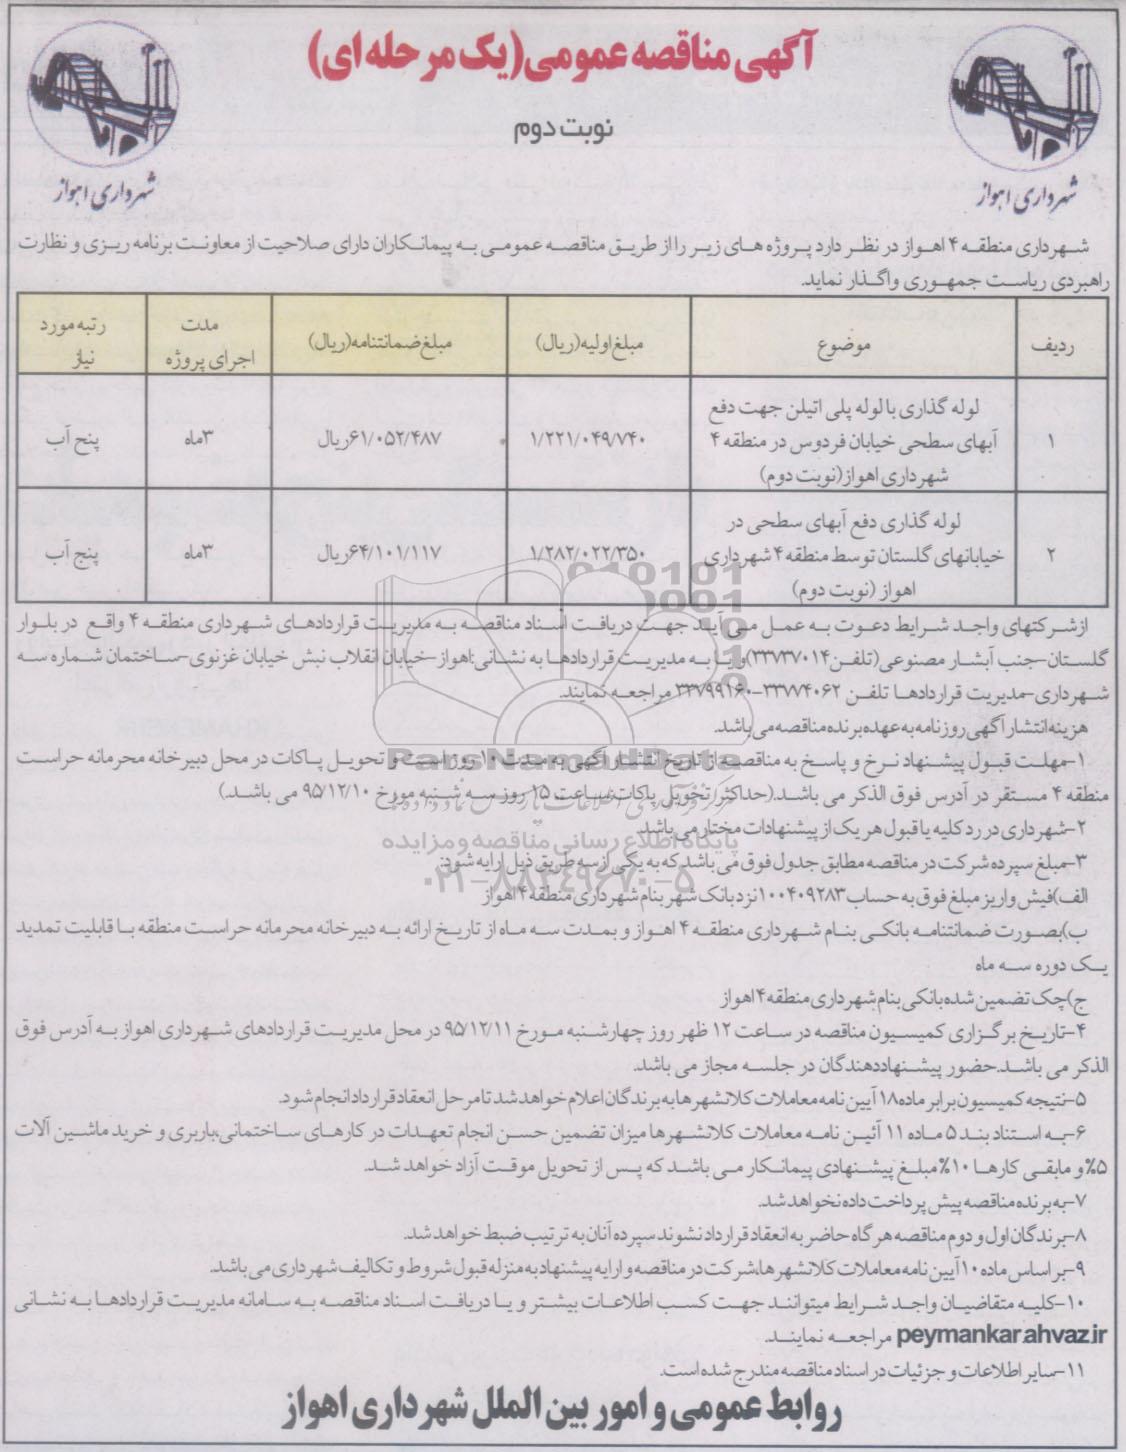 آگهی مناقصه عمومی(یک مرحله ای)
نوبت دوم
شهرداری اهواز
شهرداری اهواز
شهرداری منطقه ۴ اهواز در نظر دارد پروژه های زیر را از طریق مناقصه عمومی به پیمانکاران دارای صلاحیت از معاونت برنامه ریزی و نظارت
راهبردی ریاست جمهوری واگذار نماید.
ردیف موضوع مبلغ اولیه(ریال) مبلغ ضمانتنامه(ریال) مدت اجرای پروژه رتبه مورد نیاز
لوله گذاری با لوله پلی اتیلن جهت دفع
۱ آبهای سطحی خیابان فردوس در منطقه ۴ ۱/۲۲۱/۰۴۹/۷۴۰ ۶۱/۰۵۲/۴۸۷ریال ۳ماه پنج آب
شهرداری اهواز(نوبت دوم)
لوله گذاری دفع آبهای سطحی در
۲ خیابانهای گلستان توسط منطقه ۴ شهرداری ۱/۲۸۲/۰۲۲/۳۵۰ ۶۴/۱۰۱/۱۱۷ریال ۳ماه پنج آب
اهواز (نوبت دوم)
ازشرکتهای واجد شرایط دعوت به عمل می آید جهت دریافت اسناد مناقصه به مدیریت قراردادهای شهرداری منطقه ۴ واقع در بلوار
گلستان-جنب آبشار مصنوعی(تلفن۳۳۷۳۷۰۱۴)و یا به مدیریت قراردادها به نشانی:اهواز-خیابان انقلاب نبش خیابان غزنوی-ساختمان شماره سه
شهرداری-مدیریت قراردادها تلفن ۳۳۷۷۴۰۶۲-۳۳۷۹۹۱۶۰ مراجعه نمایند.
هزینه انتشار آگهی روزنامه به عهده برنده مناقصه می باشد.
۱-مهلت قبول پیشنهاد نرخ و پاسخ به مناقصه از تاریخ انتشار آگهی به مدت ۱۰ روز است و تحویل پاکات در محل دبیرخانه محرمانه حراست
منطقه ۴ مستقر در آدرس فوق الذکر می باشد.(حداکثر تحویل پاکات ساعت ۱۵ روز سه شنبه مورخ ۹۵/۱۲/۱۰ می باشد.)
۲-شهرداری در رد کلیه یا قبول هر یک از پیشنهادات مختار می باشد.
۳-مبلغ سپرده شرکت در مناقصه مطابق جدول فوق می باشد که به یکی از سه طریق ذیل ارایه شود:
الف)فیش واریز مبلغ فوق به حساب ۱۰۰۴۰۹۲۸۳ نزد بانک شهر بنام شهرداری منطقه ۴ اهواز
ب)بصورت ضمانتنامه بانکی بنام شهرداری منطقه ۴ اهواز و بمدت سه ماه از تاریخ ارائه به دبیرخانه محرمانه حراست منطقه با قابلیت تمدید
یک دوره سه ماه
ج)چک تضمین شده بانکی بنام شهرداری منطقه ۴ اهواز
۴-تاریخ برگزاری کمیسیون مناقصه در ساعت ۱۲ ظهر روز چهارشنبه مورخ ۹۵/۱۲/۱۱ در محل مدیریت قراردادهای شهرداری اهواز به آدرس فوق
الذکر می باشد.حضور پیشنهاددهندگان در جلسه مجاز می باشد.
۵-نتیجه کمیسیون برابر ماده ۱۸ آیین نامه معاملات کلانشهرها به برندگان اعلام خواهد شد تا مرحل انعقاد قرارداد انجام شود.
۶-به استناد بند ۵ ماده ۱۱ آئین نامه معاملات کلانشهرها میزان تضمین حسن انجام تعهدات در کارهای ساختمانی،باربری و خرید ماشین آلات
۵% و مابقی کارها ۱۰% مبلغ پیشنهادی پیمانکار می باشد که پس از تحویل موقت آزاد خواهد شد.
۷-به برنده مناقصه پیش پرداخت داده نخواهد شد.
۸-برندگان اول و دوم مناقصه هرگاه حاضر به انعقاد قرارداد نشوند سپرده آنان به ترتیب ضبط خواهد شد.
۹-بر اساس ماده ۱۰ آیین نامه معاملات کلانشهرها،شرکت در مناقصه و ارایه پیشنهاد به منزله قبول شروط و تکالیف شهرداری می باشد.
۱۰-کلیه متقاضیان واجد شرایط میتوانند جهت کسب اطلاعات بیشتر و یا دریافت اسناد مناقصه به سامانه مدیریت قراردادها به نشانی
peymankar.ahvaz.ir مراجعه نمایند.
۱۱-سایر اطلاعات و جزئیات در اسناد مناقصه مندرج شده است.
روابط عمومی و امور بین الملل شهرداری اهواز
ParsNamadData
پایگاه اطلاع رسانی مناقصه و مزایده
۰۲۱-۸۸۳۴۹۶۷۰-۵